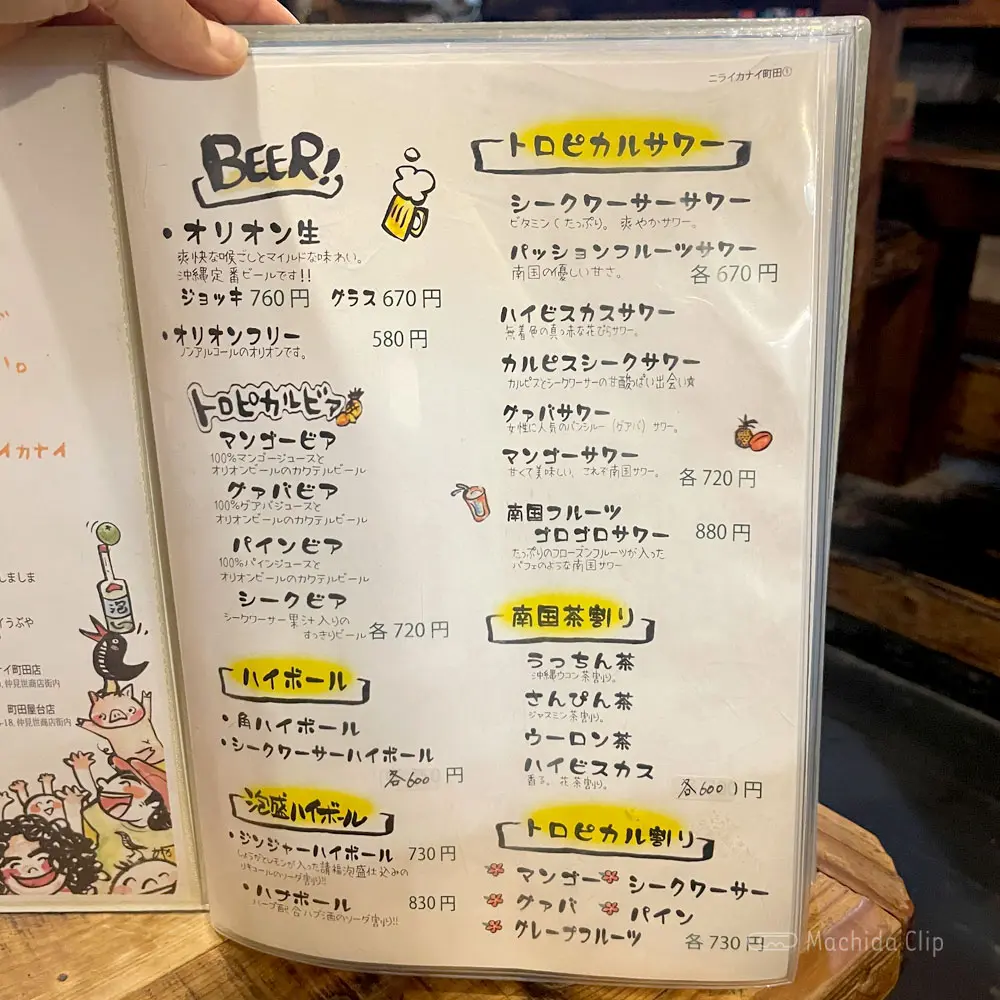 ニライカナイ町田①
BEER!
・オリオン生
爽快な喉ごしとマイルドな味わい。
沖縄定番ビールです!!
ジョッキ 760円 グラス 670円
・オリオンフリー 580円
ノンアルコールのオリオンです。
トロピカルビア
マンゴービア
100%マンゴージュースと
オリオンビールのカクテルビール
グァバビア
100%グアバジュースと
オリオンビールのカクテルビール
パインビア
100%パインジュースと
オリオンビールのカクテルビール
シークビア
シークワーサー果汁入りの
すっきりビール 各720円
ハイボール
・角ハイボール
・シークワーサーハイボール
各600円
泡盛ハイボール
・ジンジャーハイボール 730円
しょうがとレモンが入った請福泡盛仕込みの
リキュールのソーダ割り!!
・ハブボール 830円
ハーブ配合ハブ酒のソーダ割り!!
トロピカルサワー
シークワーサーサワー
ビタミンCたっぷり。爽やかサワー。
パッションフルーツサワー
南国の優しい甘さ。 各670円
ハイビスカスサワー
無着色の真っ赤な花びらサワー。
カルピスシークサワー
カルピスとシークワーサーの甘酸っぱい出会い☆
グァバサワー
女性に人気のバンシルー（グアバ）サワー。
マンゴーサワー
甘くて美味しい、これぞ南国サワー。 各720円
南国フルーツ
ゴロゴロサワー 880円
たっぷりのフローズンフルーツが入った
パフェのような南国サワー
南国茶割り
うっちん茶
沖縄ウコン茶割り。
さんぴん茶
ジャスミン茶割り。
ウーロン茶
ハイビスカス
香る、花茶割り。 各600円
トロピカル割り
マンゴー シークワーサー
グァバ パイン
グレープフルーツ 各730円
イカナイ
しましま
イうぶや
ナイ町田店
仲見世商店街内
町田屋台店
-18, 仲見世商店街内
泡
Machida Clip